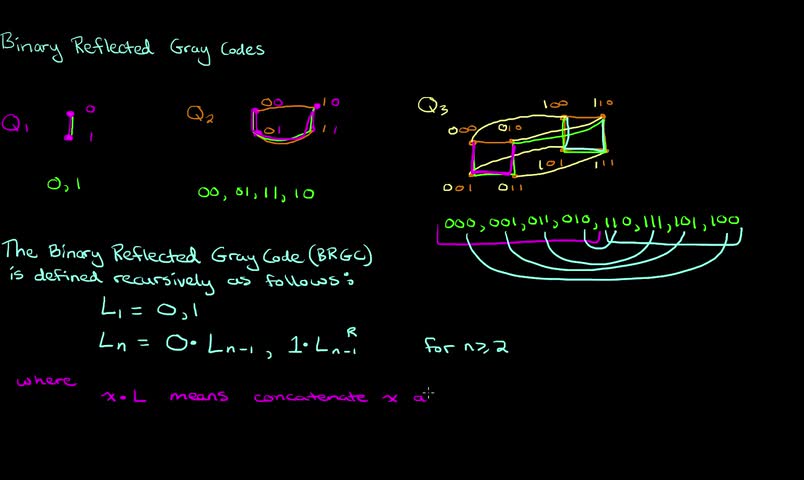 Binary Reflected Gray Codes
Q1
0
1
0,1
Q2
00
10
01
11
00, 01, 11, 10
Q3
100
110
000
010
101
111
001
011
000, 001, 011, 010, 110, 111, 101, 100
The Binary Reflected Gray Code (BRGC)
is defined recursively as follows:
L1 = 0,1
Ln = 0· Ln-1 , 1· Ln-1 R for n≥2
where
x·L means concatenate x a